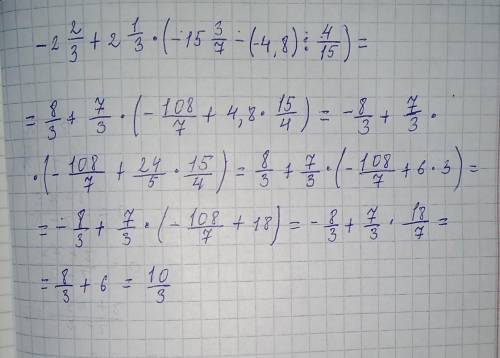 -2 2/3 + 2 1/3 · (-15 3/7 - (-4,8) : 4/15) =
= 8/3 + 7/3 · (-108/7 + 4,8 · 15/4) = -8/3 + 7/3 ·
· (-108/7 + 24/5 · 15/4) = 8/3 + 7/3 · (-108/7 + 6 · 3) =
= -8/3 + 7/3 · (-108/7 + 18) = -8/3 + 7/3 · 18/7 =
= 8/3 + 6 = 10/3